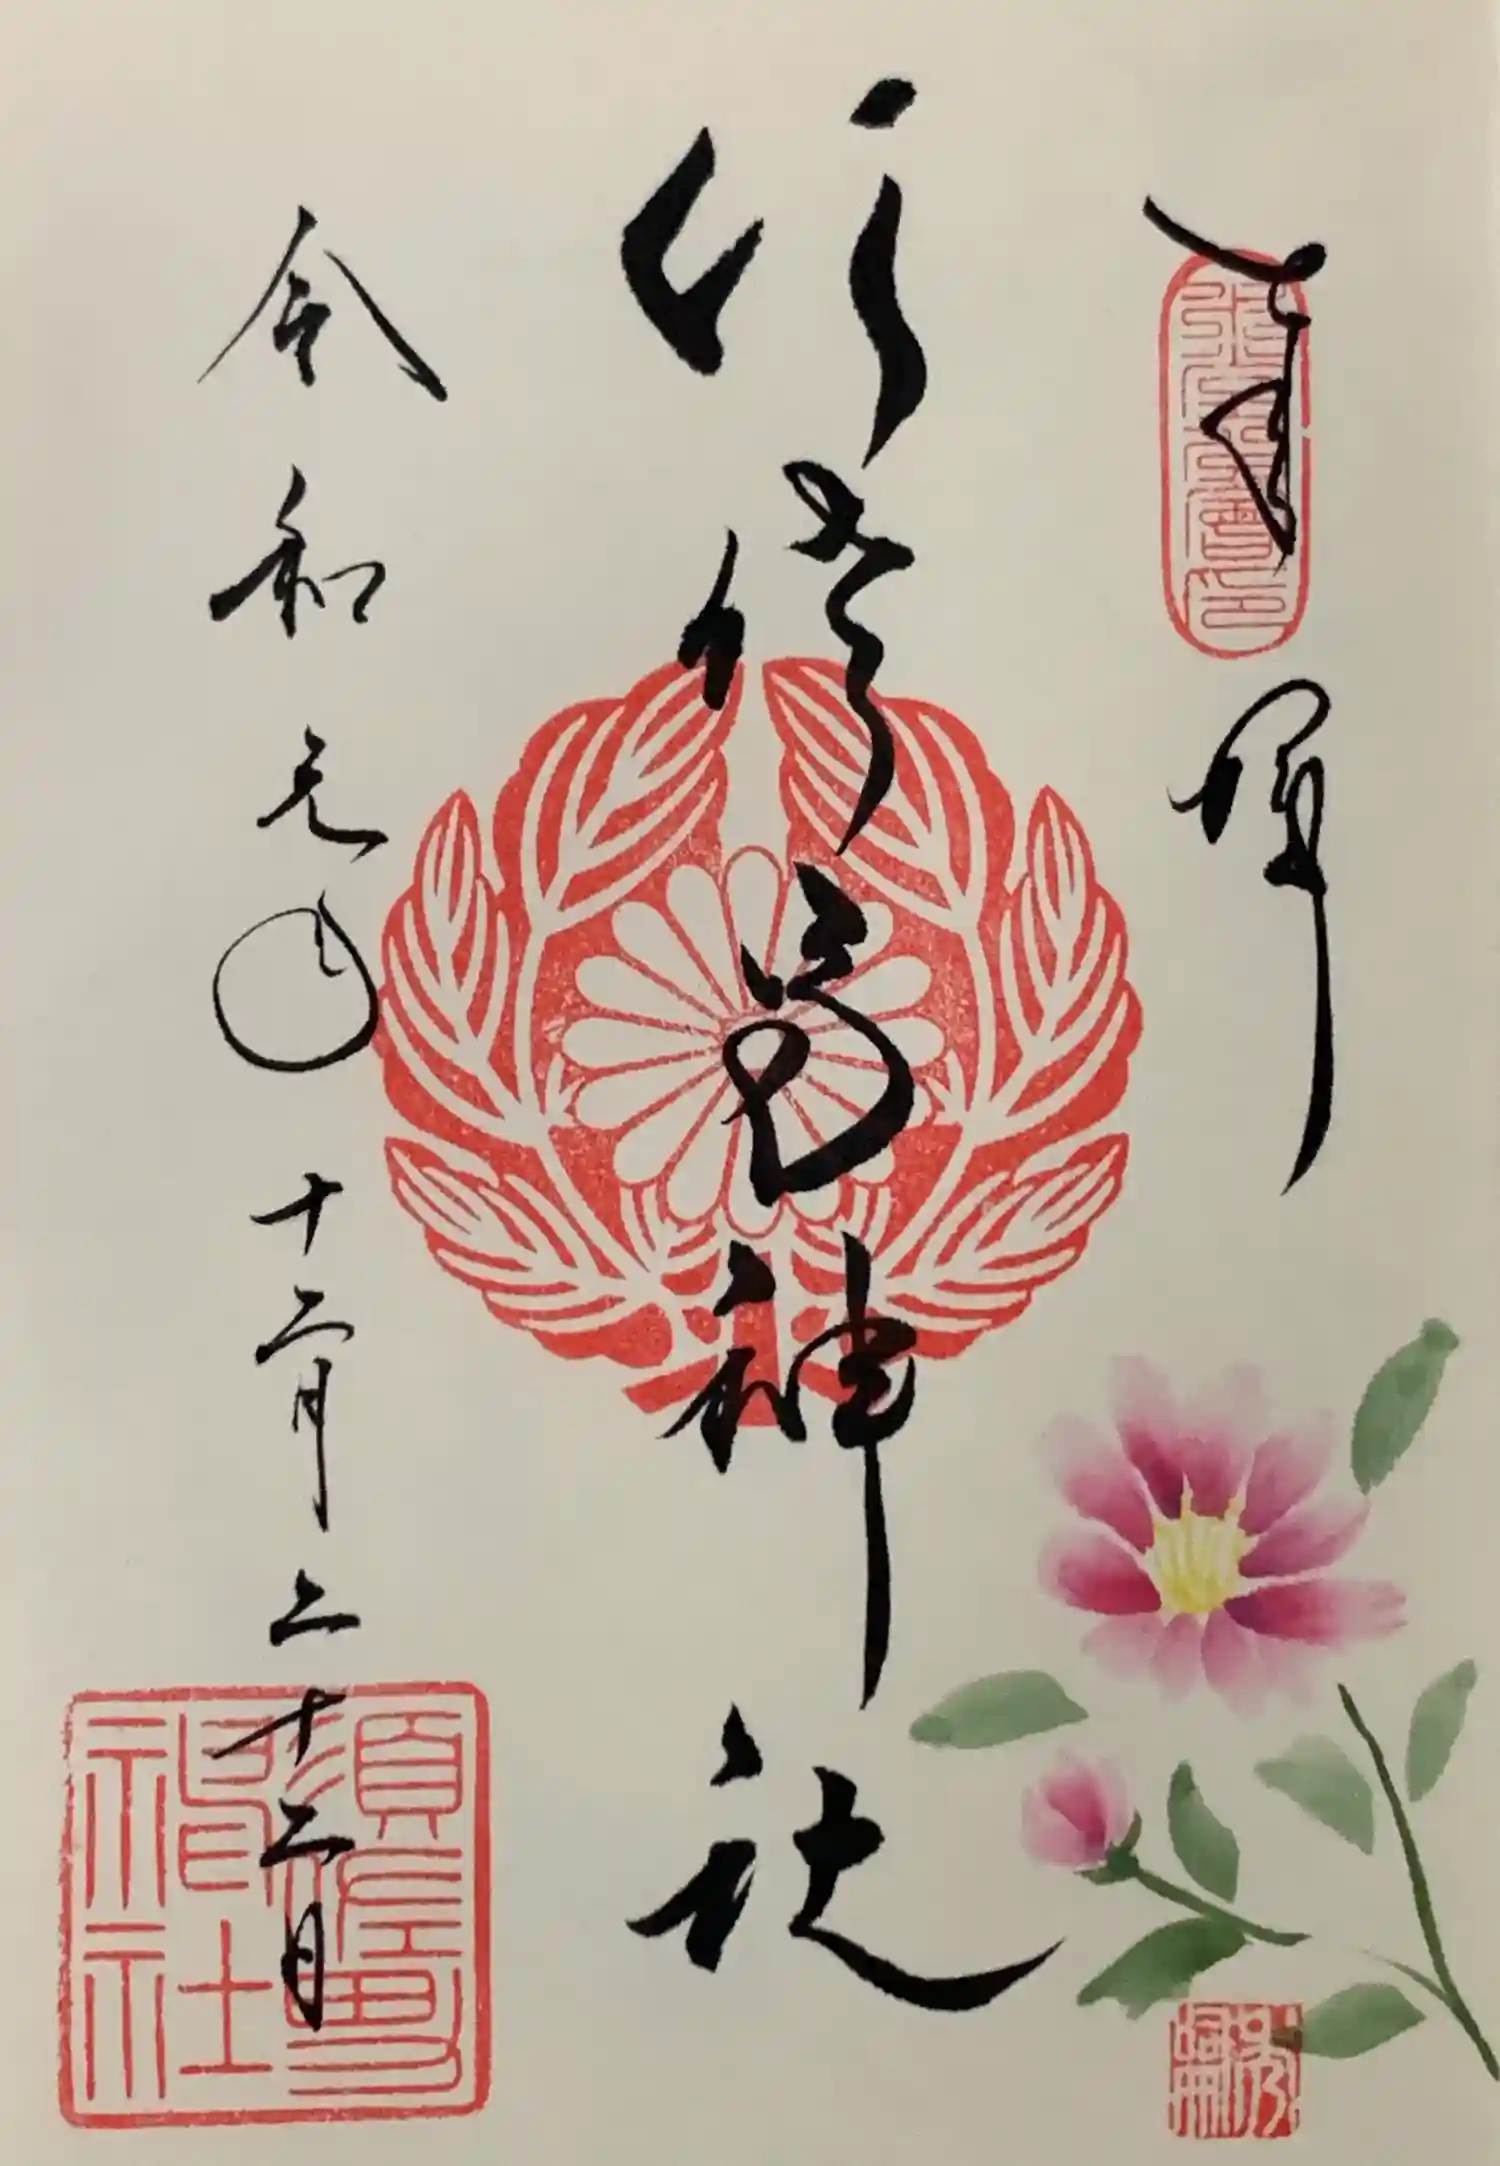 奉拝
須佐男神社
令和元年十二月二十二日
須佐男神社